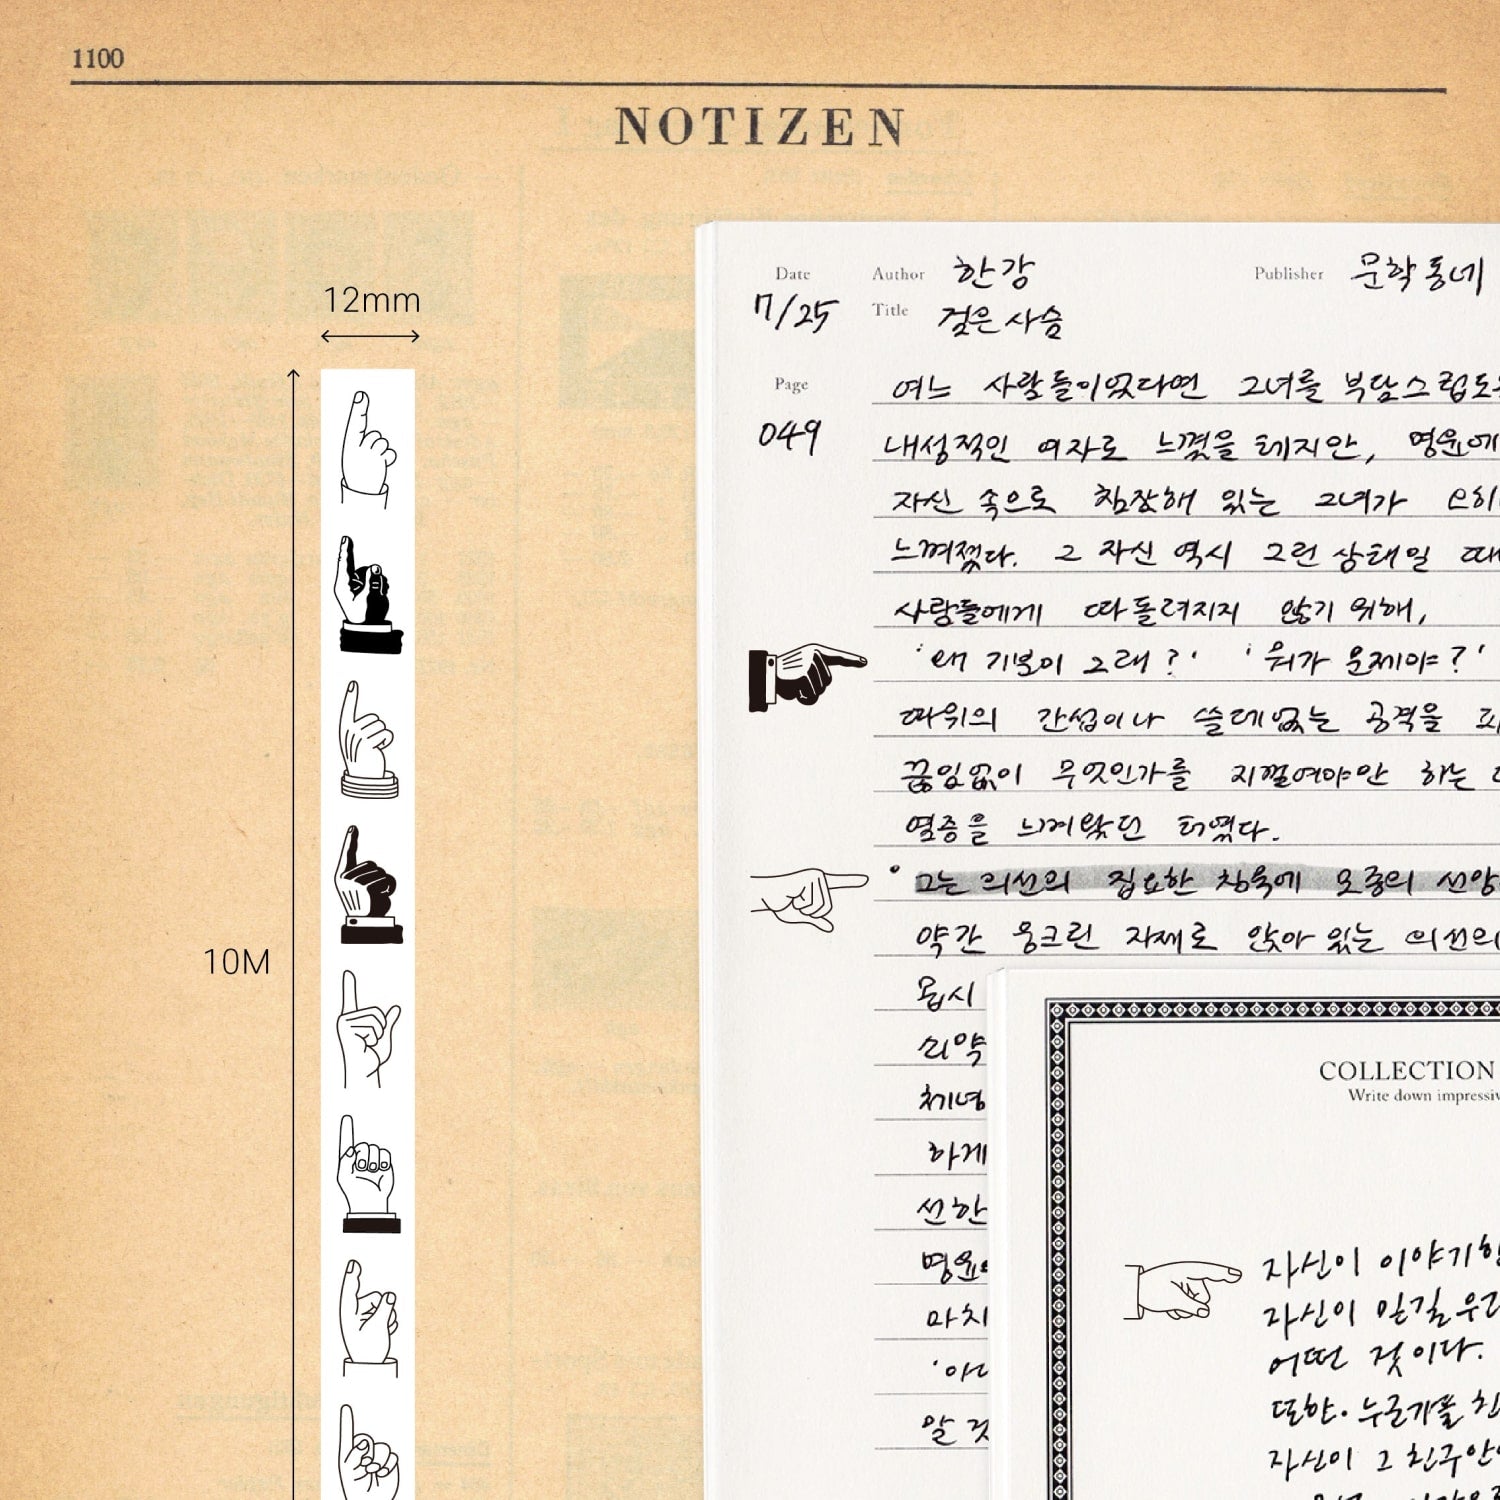 1100
NOTIZEN
12mm
10M
Date
7/25
Author 한강
Publisher 문학동네
Title 검은 사슴
Page
049
여느 사람들이었다면 그녀를 부담스럽도
내성적인 여자로 느꼈을 테지만, 명윤에
자신 속으로 침잠해 있는 그녀가
느껴졌다. 그 자신 역시 그런 상태일 때
사람들에게 따돌려지지 않기 위해,
'왜 기분이 그래?' '뭐가 문제야?'
따위의 간섭이나 쓸데없는 공격을 피
끊임없이 무엇인가를 지껄여야만 하는
염증을 느껴왔던 터였다.
그는 의선의 집요한 침묵에 모종의 선망
약간 웅크린 자세로 앉아 있는 의선의
몹시
쇠약
체념
하게
선한
명윤
마치
'아
알 것
COLLECTION
Write down impressiv
자신이 이야기한
자신이 믿길 우려
어떤 것이다.
또한. 누군가를 친
자신이 그 친구만